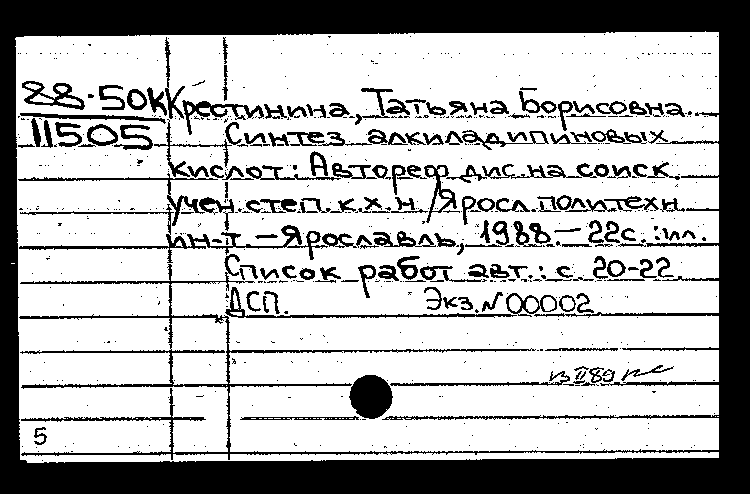 88-50К Крестинина, Татьяна Борисовна.
11505 Синтез алкиладипиновых
кислот: Автореф. дис. на соиск.
учен. степ. к.х.н. / Яросл. политехн.
ин-т. — Ярославль, 1988. — 22с. : ил.
Список работ авт.: с. 20-22.
ДСП. Экз. N 00002
*
5